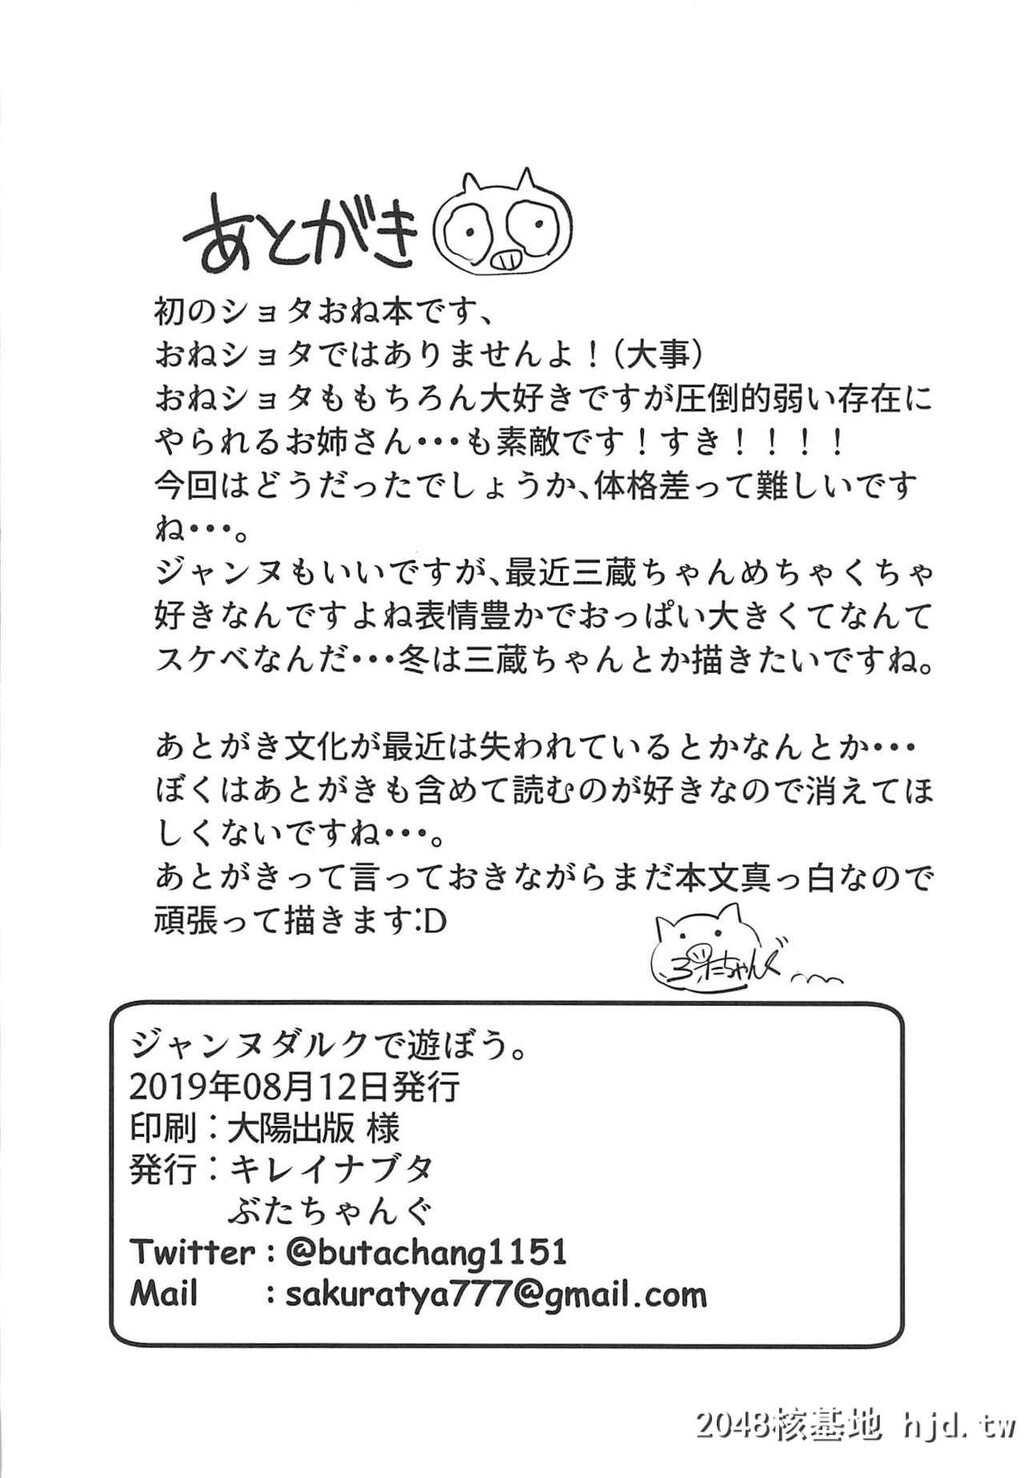 あとがき
初のショタおね本です、
おねショタではありませんよ！（大事）
おねショタももちろん大好きですが圧倒的弱い存在に
やられるお姉さん・・・も素敵です！すき！！！！
今回はどうだったでしょうか、体格差って難しいです
ね・・・。
ジャンヌもいいですが、最近三蔵ちゃんめちゃくちゃ
好きなんですよね表情豊かでおっぱい大きくてなんて
スケベなんだ・・・冬は三蔵ちゃんとか描きたいですね。
あとがき文化が最近は失われているとかなんとか・・・
ぼくはあとがきも含めて読むのが好きなので消えてほ
しくないですね・・・。
あとがきって言っておきながらまだ本文真っ白なので
頑張って描きます:D
ぶたちゃんぐ
ジャンヌダルクで遊ぼう。
2019年08月12日発行
印刷：大陽出版 様
発行：キレイナブタ
ぶたちゃんぐ
Twitter : @butachang1151
Mail : sakuratya777@gmail.com
2048核基地 hjd.tw